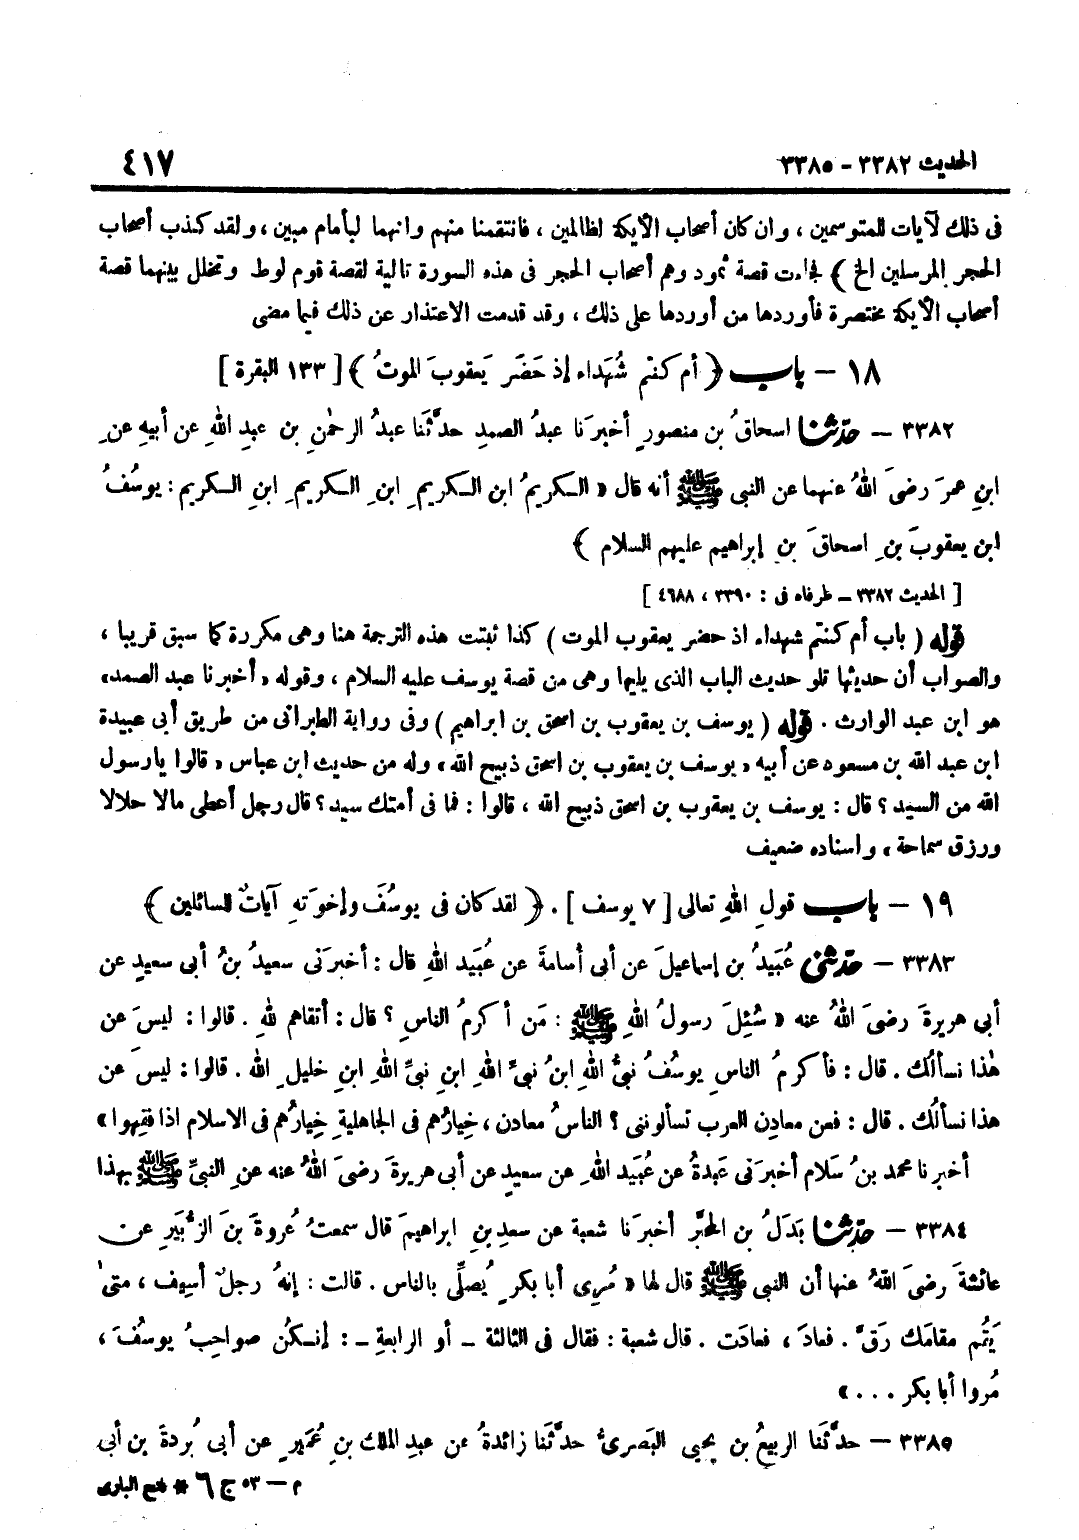 الحديث ٣٣٨٢ - ٣٣٨٥
٤١٧
فى ذلك لآيات للمتوسمين ، وان كان أصحاب الأيكة لظالمين ، فانتقمنا منهم وانهما لبأمام مبين ، ولقد كذب أصحاب
الحجر المرسلين الخ ) فجاءت قصة ثمود وهم أصحاب الحجر فى هذه السورة تالية لقصة قوم لوط وتخلل بينهما قصة
أصحاب الأيكة مختصرة فأوردها من أوردها على ذلك ، وقد قدمت الاعتذار عن ذلك فيما مضى
١٨ – باب ( أم كنتم شُهَداء إذ حَضَر يَعقوبَ الموتُ ) [ ١٣٣ البقرة ]
٣٣٨٢ – حدّثنا اسحاقُ بن منصورٍ أخبرَنا عبدُ الصمدِ حدَّثَنا عبدُ الرحمٰنِ بن عبدِ اللهِ عن أبيهِ عنِ
ابنِ عمرَ رضىَ اللهُ عنهما عن النبى ﷺ أنه قال « الـكريمُ ابن الـكريمِ ابنِ الـكريمِ ابنِ الـكريم : يوسُفُ
ابن يعقوبَ بنِ اسحاقَ بنِ إبراهيم عليهم السلام »
[ الحديث ٣٣٨٢ – طرفاه فى : ٣٣٩٠ ، ٤٦٨٨ ]
قوله ( باب أم كنتم شهداء اذ حضر يعقوب الموت ) كذا ثبتت هذه الترجمة هنا وهى مكررة كما سبق قريبا ،
والصواب أن حديثها تلو حديث الباب الذى يليها وهى من قصة يوسف عليه السلام ، وقوله « أخبرنا عبد الصمد»
هو ابن عبد الوارث . قوله ( يوسف بن يعقوب بن اسحق بن ابراهيم ) وفى رواية الطبرانى من طريق أبى عبيدة
ابن عبد الله بن مسعود عن أبيه « يوسف بن يعقوب بن اسحق ذبيح الله » وله من حديث ابن عباس « قالوا يارسول
الله من السيد ؟ قال : يوسف بن يعقوب بن اسحق ذبيح الله ، قالوا : فما فى أمتك سيد ؟ قال رجل أعطى مالا حلالا
ورزق سماحة » واسناده ضعيف
١٩ – باب قولِ اللهِ تعالى [ ٧ يوسف ] . ( لقد كان فى يوسُفَ وإخوَتهِ آياتٌ للسائلين )
٣٣٨٣ – حدّثنى عُبَيدُ بن إسماعيلَ عن أبى أسامةَ عن عُبَيد اللهِ قال : أخبرَنى سعيدُ بنُ أبى سعيدٍ عن
أبى هريرةَ رضىَ اللهُ عنه « سُئِلَ رسولُ اللهِ ﷺ : مَن أكرمُ الناسِ ؟ قال : أتقاهم للهِ . قالوا : ليسَ عن
هٰذا نسألُك . قال : فأكرمُ الناسِ يوسُفُ نبىُّ اللهِ ابنُ نبىِّ اللهِ ابنِ نبىِّ اللهِ ابنِ خليلِ الله . قالوا : ليسَ عن
هذا نسألُك . قال : فعن معادِنِ العربِ تسألوننى ؟ الناسُ معادن ، خِيارُهم فى الجاهليةِ خِيارُهم فى الاسلام اذا فقِهوا »
أخبرنا محمد بنُ سَلام أخبرَنى عَبدةُ عن عُبَيد اللهِ عن سعيدٍ عن أبى هريرةَ رضىَ اللهُ عنه عنِ النبىِّ ﷺ بهذا
٣٣٨٤ – حدّثنا بَدَلُ بن المحبَّر أخبرَنا شعبة عن سعدِ بنِ ابراهيمَ قال سمعتُ عُروةَ بنَ الزُّبَيرِ عن
عائشةَ رضىَ اللهُ عنها أن النبى ﷺ قال لها « مُرِى أبا بكرٍ يُصلِّى بالناس . قالت : إنهُ رجلٌ أسِيف ، متىٰ
يَقُم مقامَك رَقَّ . فعادَ ، فعادَت . قال شعبة : فقال فى الثالثة – أو الرابعةِ – : إنـكُن صواحِبُ يوسُفَ ،
مُروا أبا بكر . . . »
٣٣٨٥ – حدَّثَنا الربيعُ بن يحيى البَصرىُّ حدَّثَنا زائدةُ عن عبدِ الملك بنِ عُمَيرٍ عن أبى بُردةَ بن أبى
م – ٥٣ ج ٦ * فتح البارى